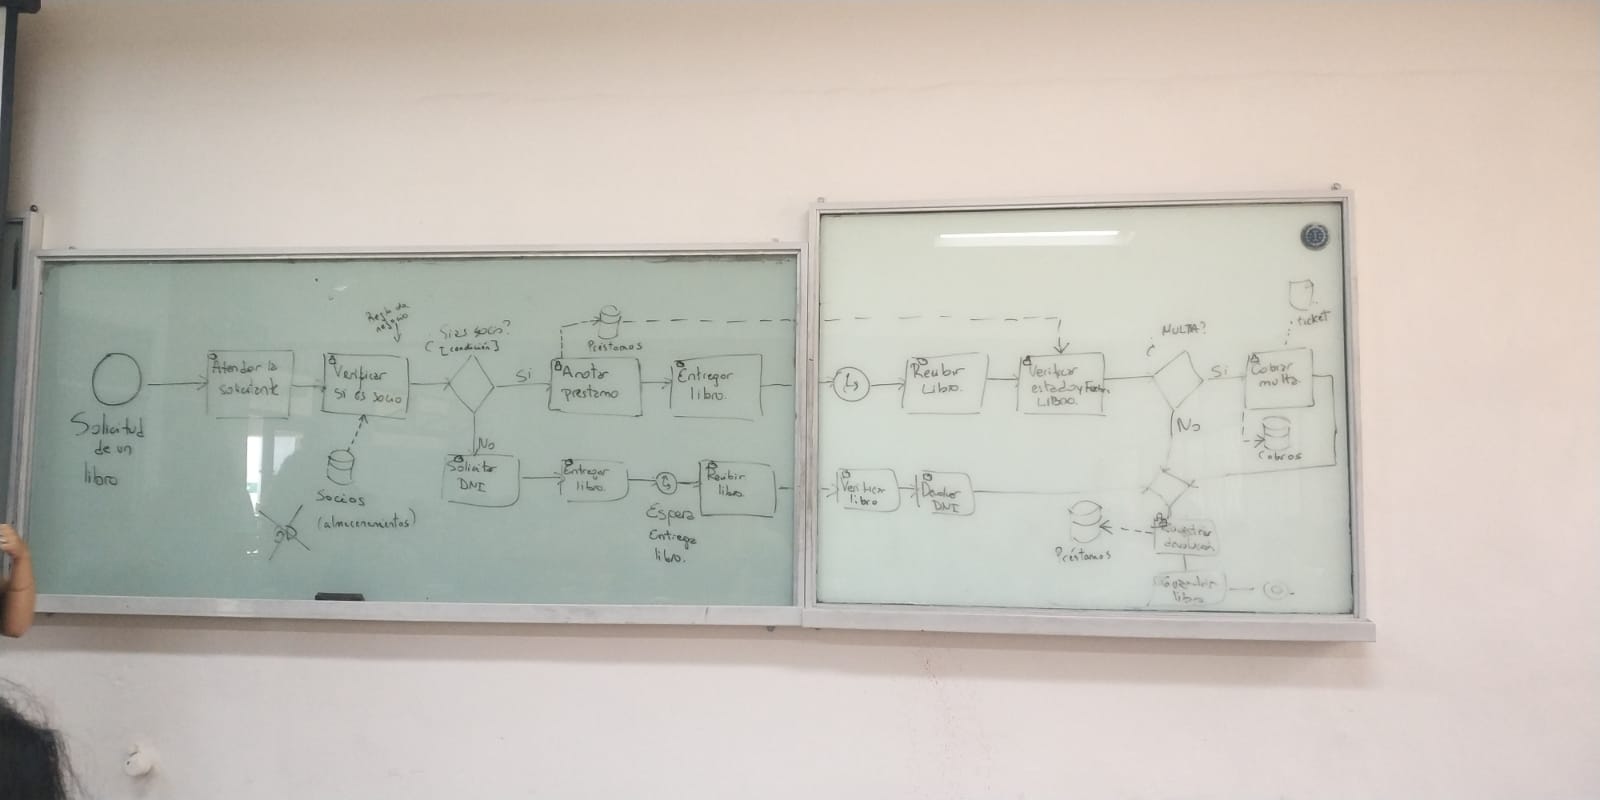 Solicitud
de un
libro
Atender la
solicitante
Verificar
si es socio
Socios
(almacenamientos)
Regla de
negocio
¿Si es socio?
[condición]
Si
No
Préstamos
Anotar
prestamo
Entregar
libro.
Solicitar
DNI
Entregar
libro.
Espera
Entrega
libro.
Recibir
libro.
Recibir
Libro.
Verificar
estado y Fecha
LIBRO.
¿MULTA?
Si
No
Cobrar
multa.
ticket
Cobros
Verificar
libro
Devolver
DNI
Préstamos
Registrar
devolución
libro